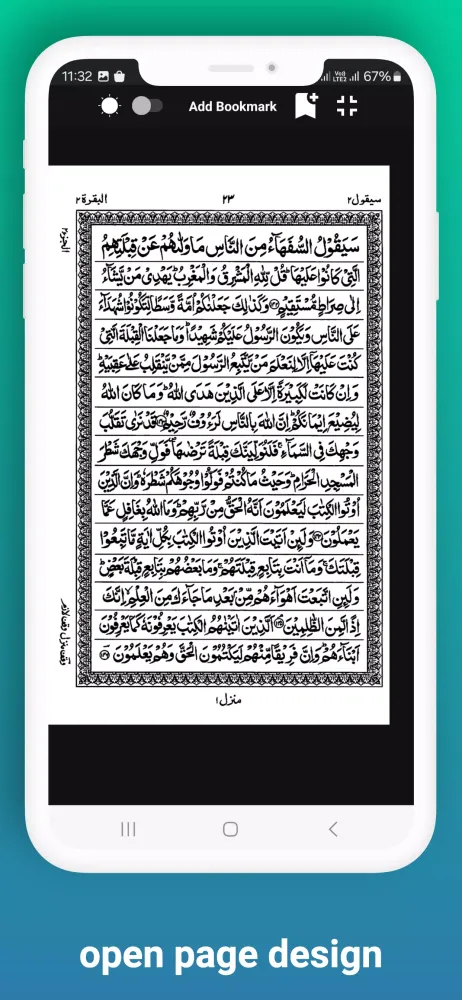 11:32
Vo))
LTE2
67%
Add Bookmark
سيقول٢ ٢٣ البقرة٢
الجزء٢
سَيَقُوْلُ السُّفَهَآءُ مِنَ النَّاسِ مَا وَلّٰىهُمْ عَنْ قِبْلَتِهِمُ
الَّتِىْ كَانُوْا عَلَيْهَا ؕ قُلْ لِّلّٰهِ الْمَشْرِقُ وَالْمَغْرِبُ ؕ يَهْدِىْ مَنْ يَّشَآءُ
اِلٰى صِرَاطٍ مُّسْتَقِيْمٍ ۝ وَكَذٰلِكَ جَعَلْنٰكُمْ اُمَّةً وَّسَطًا لِّتَكُوْنُوْا شُهَدَآءَ
عَلَى النَّاسِ وَيَكُوْنَ الرَّسُوْلُ عَلَيْكُمْ شَهِيْدًا ؕ وَمَا جَعَلْنَا الْقِبْلَةَ الَّتِىْ
كُنْتَ عَلَيْهَآ اِلَّا لِنَعْلَمَ مَنْ يَّتَّبِعُ الرَّسُوْلَ مِمَّنْ يَّنْقَلِبُ عَلٰى عَقِبَيْهِ ؕ
وَاِنْ كَانَتْ لَكَبِيْرَةً اِلَّا عَلَى الَّذِيْنَ هَدَى اللّٰهُ ؕ وَمَا كَانَ اللّٰهُ
لِيُضِيْعَ اِيْمَانَكُمْ ؕ اِنَّ اللّٰهَ بِالنَّاسِ لَرَءُوْفٌ رَّحِيْمٌ ۝ قَدْ نَرٰى تَقَلُّبَ
وَجْهِكَ فِى السَّمَآءِ ۚ فَلَنُوَلِّيَنَّكَ قِبْلَةً تَرْضٰىهَا ۪ فَوَلِّ وَجْهَكَ شَطْرَ
الْمَسْجِدِ الْحَرَامِ ؕ وَحَيْثُ مَا كُنْتُمْ فَوَلُّوْا وُجُوْهَكُمْ شَطْرَهٗ ؕ وَاِنَّ الَّذِيْنَ
اُوْتُوا الْكِتٰبَ لَيَعْلَمُوْنَ اَنَّهُ الْحَقُّ مِنْ رَّبِّهِمْ ؕ وَمَا اللّٰهُ بِغَافِلٍ عَمَّا
يَعْمَلُوْنَ ۝ وَلَئِنْ اَتَيْتَ الَّذِيْنَ اُوْتُوا الْكِتٰبَ بِكُلِّ اٰيَةٍ مَّا تَبِعُوْا
قِبْلَتَكَ ۚ وَمَآ اَنْتَ بِتَابِعٍ قِبْلَتَهُمْ ۚ وَمَا بَعْضُهُمْ بِتَابِعٍ قِبْلَةَ بَعْضٍ ؕ
وَلَئِنِ اتَّبَعْتَ اَهْوَآءَهُمْ مِّنْۢ بَعْدِ مَا جَآءَكَ مِنَ الْعِلْمِ ۙ اِنَّكَ
اِذًا لَّمِنَ الظّٰلِمِيْنَ ۝ اَلَّذِيْنَ اٰتَيْنٰهُمُ الْكِتٰبَ يَعْرِفُوْنَهٗ كَمَا يَعْرِفُوْنَ
اَبْنَآءَهُمْ ؕ وَاِنَّ فَرِيْقًا مِّنْهُمْ لَيَكْتُمُوْنَ الْحَقَّ وَهُمْ يَعْلَمُوْنَ ۝
منزل١
open page design